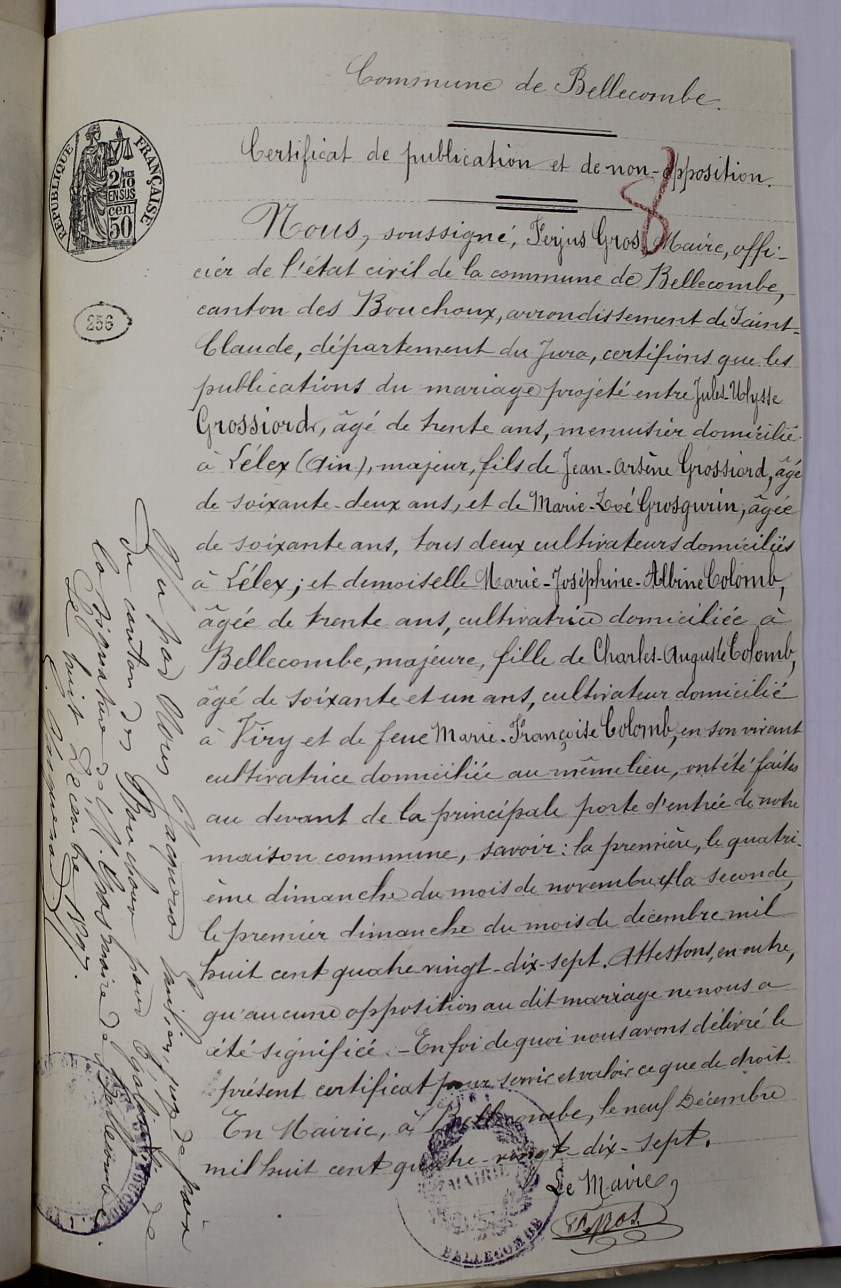 Commune de Bellecombe.
Certificat de publication et de non-opposition.
8
RÉPUBLIQUE FRANÇAISE
2/10
EN SUS
50 cen
256
Nous, soussigné, Ferjus Gros, Maire, offi-
cier de l'état civil de la commune de Bellecombe,
canton des Bouchoux, arrondissement de Saint-
Claude, département du Jura, certifions que les
publications du mariage projeté entre Jules-Ulysse
Grossiord, âgé de trente ans, menuisier domicilié
à Lélex (Ain), majeur, fils de Jean-Arsène Grossiord, âgé
de soixante-deux ans, et de Marie-Zoé Grosgurin, âgée
de soixante ans, tous deux cultivateurs domiciliés
à Lélex; et demoiselle Marie-Joséphine-Albine Colomb,
âgée de trente ans, cultivatrice domiciliée à
Bellecombe, majeure, fille de Charles-Auguste Colomb,
âgé de soixante et un ans, cultivateur domicilié
à Viry et de feue Marie-Françoise Colomb, en son vivant
cultivatrice domiciliée au même lieu, ont été faites
au devant de la principale porte d'entrée de notre
maison commune, savoir: la première, le quatri-
ème dimanche du mois de novembre & la seconde,
le premier dimanche du mois de décembre mil
huit cent quatre vingt-dix-sept. Attestons, en outre,
qu'aucune opposition au dit mariage ne nous a
été signifiée. - En foi de quoi nous avons délivré le
présent certificat pour servir et valoir ce que de droit.
En Mairie, à Bellecombe, le neuf Décembre
mil huit cent quatre-vingt-dix-sept.
Le Maire,
Gros
MAIRIE
BELLECOMBE
Vu par Nous juge de paix
du canton des Bouchoux pour légalisation de
la signature de M. Gros maire de Bellecombe.
Le huit Décembre 1897.